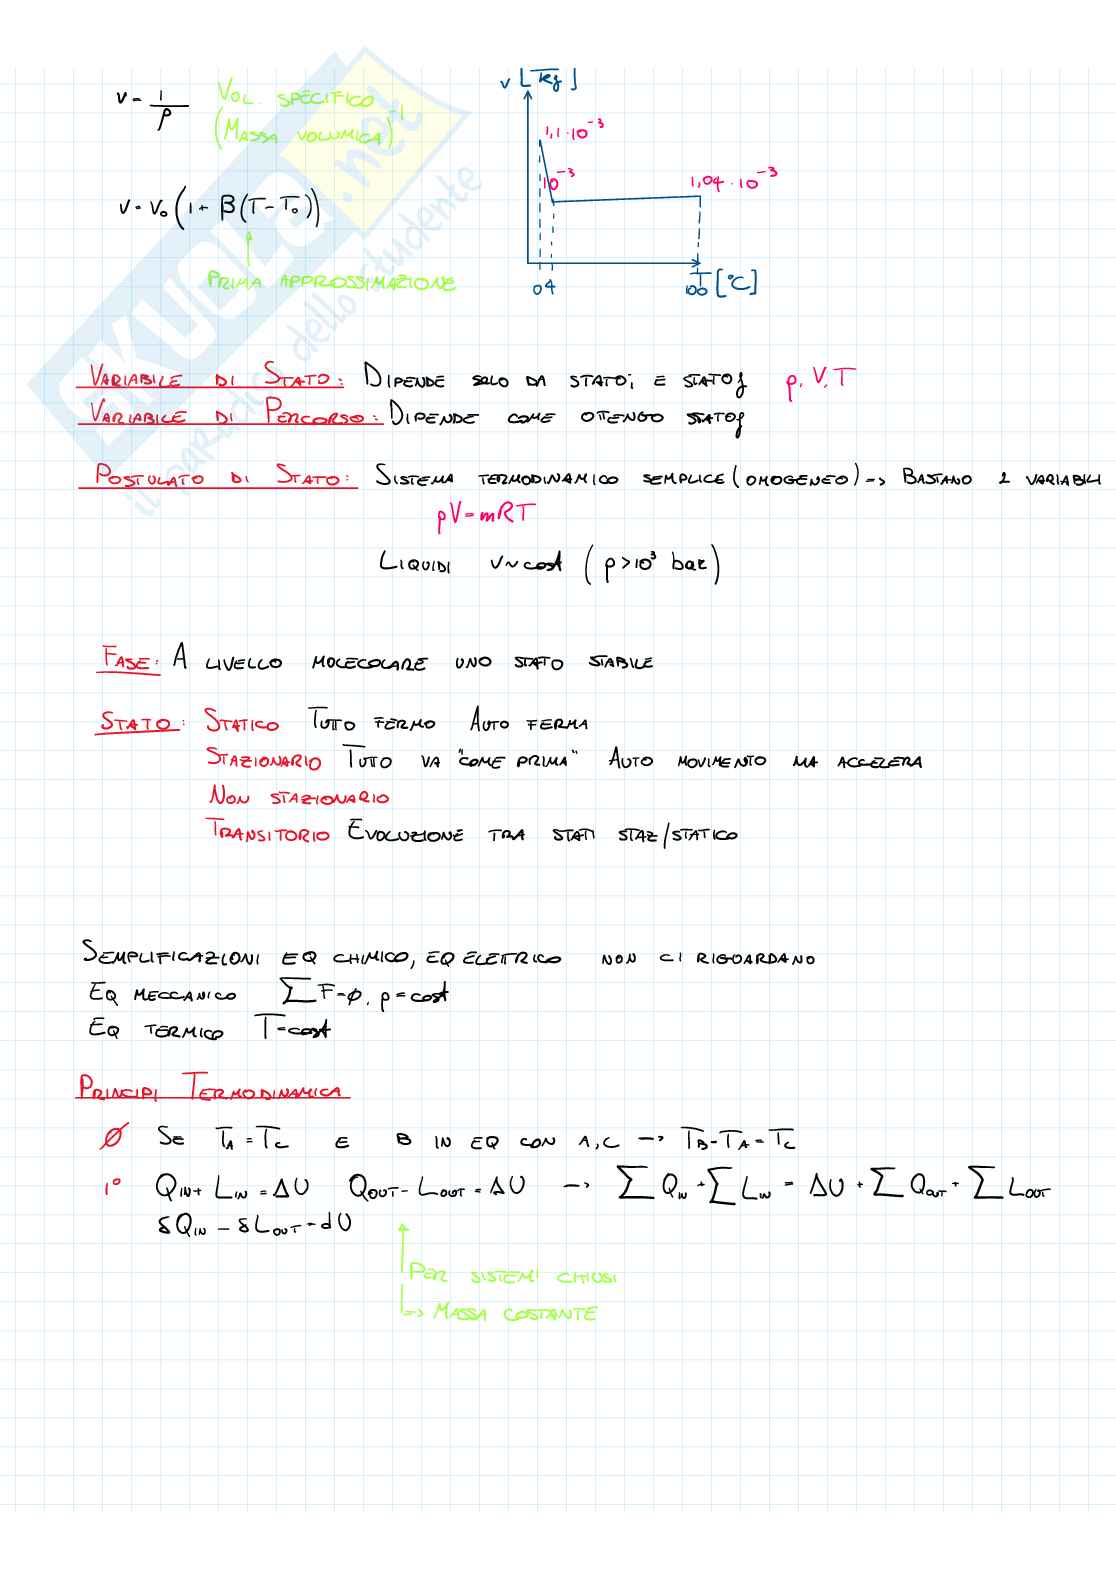 v = 1/ρ VOL. SPECIFICO
(MASSA VOLUMICA)⁻¹
v = v₀ (1 + β(T - T₀))
PRIMA APPROSSIMAZIONE
v [ kg ]
1,1·10⁻³
10⁻³
1,04·10⁻³
0 4 100 T [°C]
SKUOLA.net
il paradiso dello studente
VARIABILE DI STATO: DIPENDE SOLO DA STATOi E STATOf p, V, T
VARIABILE DI PERCORSO: DIPENDE COME OTTENGO STATOf
POSTULATO DI STATO: SISTEMA TERMODINAMICO SEMPLICE (OMOGENEO) -> BASTANO 2 VARIABILI
pV = mRT
LIQUIDI v ~ cost (p > 10³ bar)
FASE: A LIVELLO MOLECOLARE UNO STATO STABILE
STATO: STATICO TUTTO FERMO AUTO FERMA
STAZIONARIO TUTTO VA "COME PRIMA" AUTO MOVIMENTO MA ACCELERA
NON STAZIONARIO
TRANSITORIO EVOLUZIONE TRA STATI STAZ/STATICO
SEMPLIFICAZIONI EQ CHIMICO, EQ ELETTRICO NON CI RIGUARDANO
EQ MECCANICO ∑F = ∅, p = cost
EQ TERMICO T = cost
PRINCIPI TERMODINAMICA
Ø SE T_A = T_C E B IN EQ CON A, C -> T_B = T_A = T_C
1° Q_IN + L_IN = ΔU Q_OUT - L_OUT = ΔU -> ∑ Q_IN + ∑ L_IN = ΔU + ∑ Q_OUT + ∑ L_OUT
δQ_IN - δL_OUT = dU
PER SISTEMI CHIUSI
-> MASSA COSTANTE